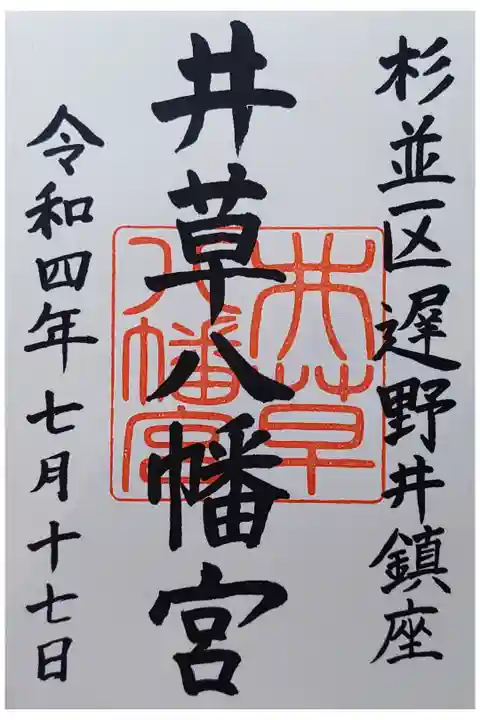 杉並区遅野井鎮座
井草八幡宮
井草
八幡宮
令和四年七月十七日